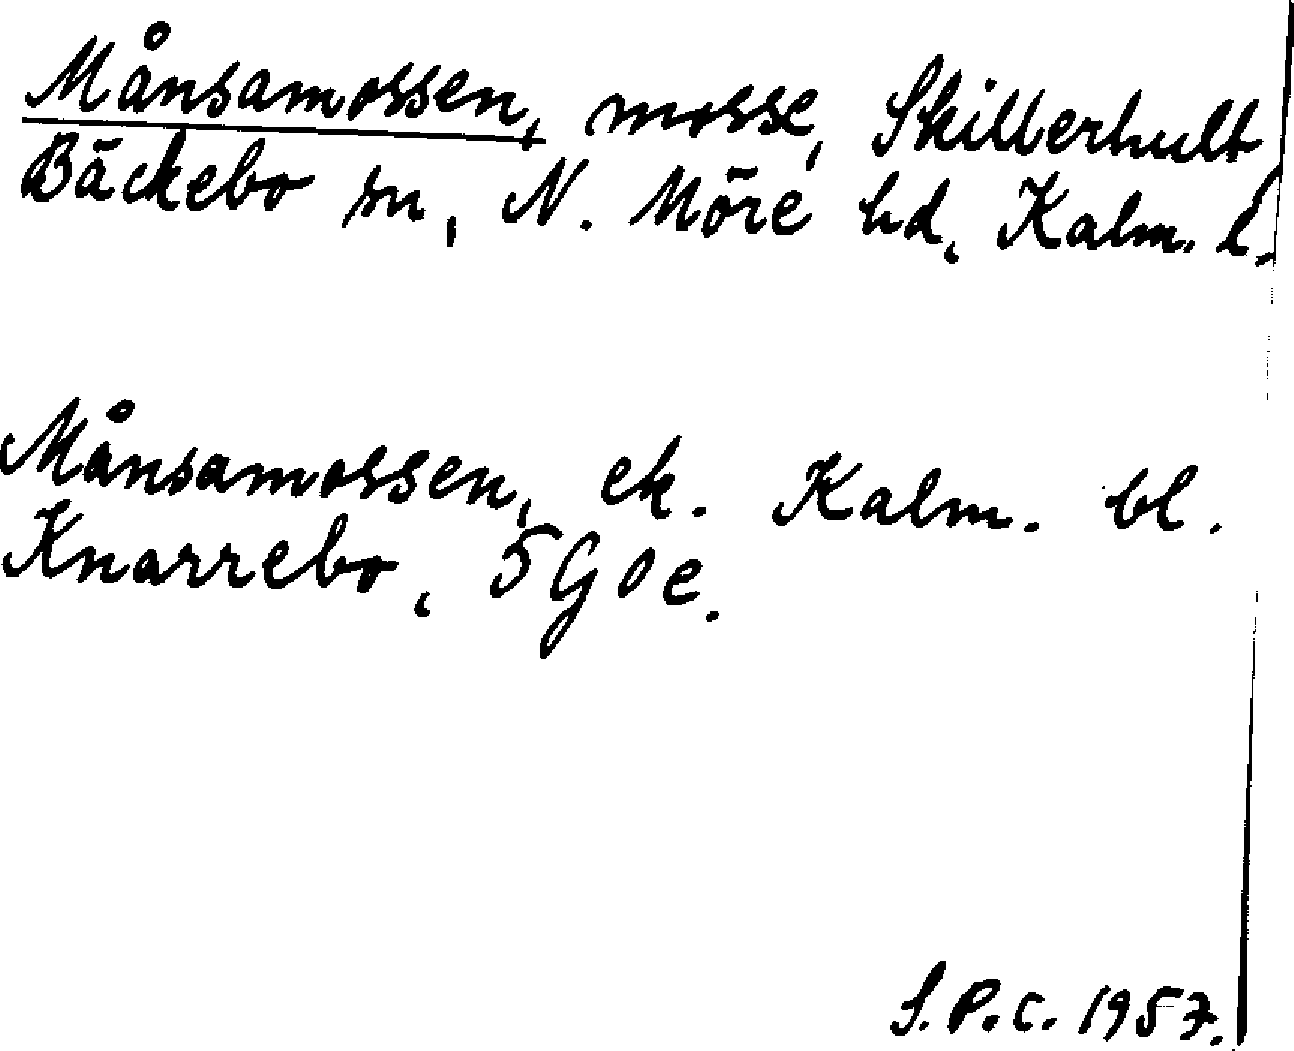 Månsamossen, mosse, Skillerhult,
Bäckebo sn, N. Möre hd, Kalm. l.
Månsamossen, ek. Kalm. bl.
Knarrebo, 5G0e.
S.P.C. 1957.